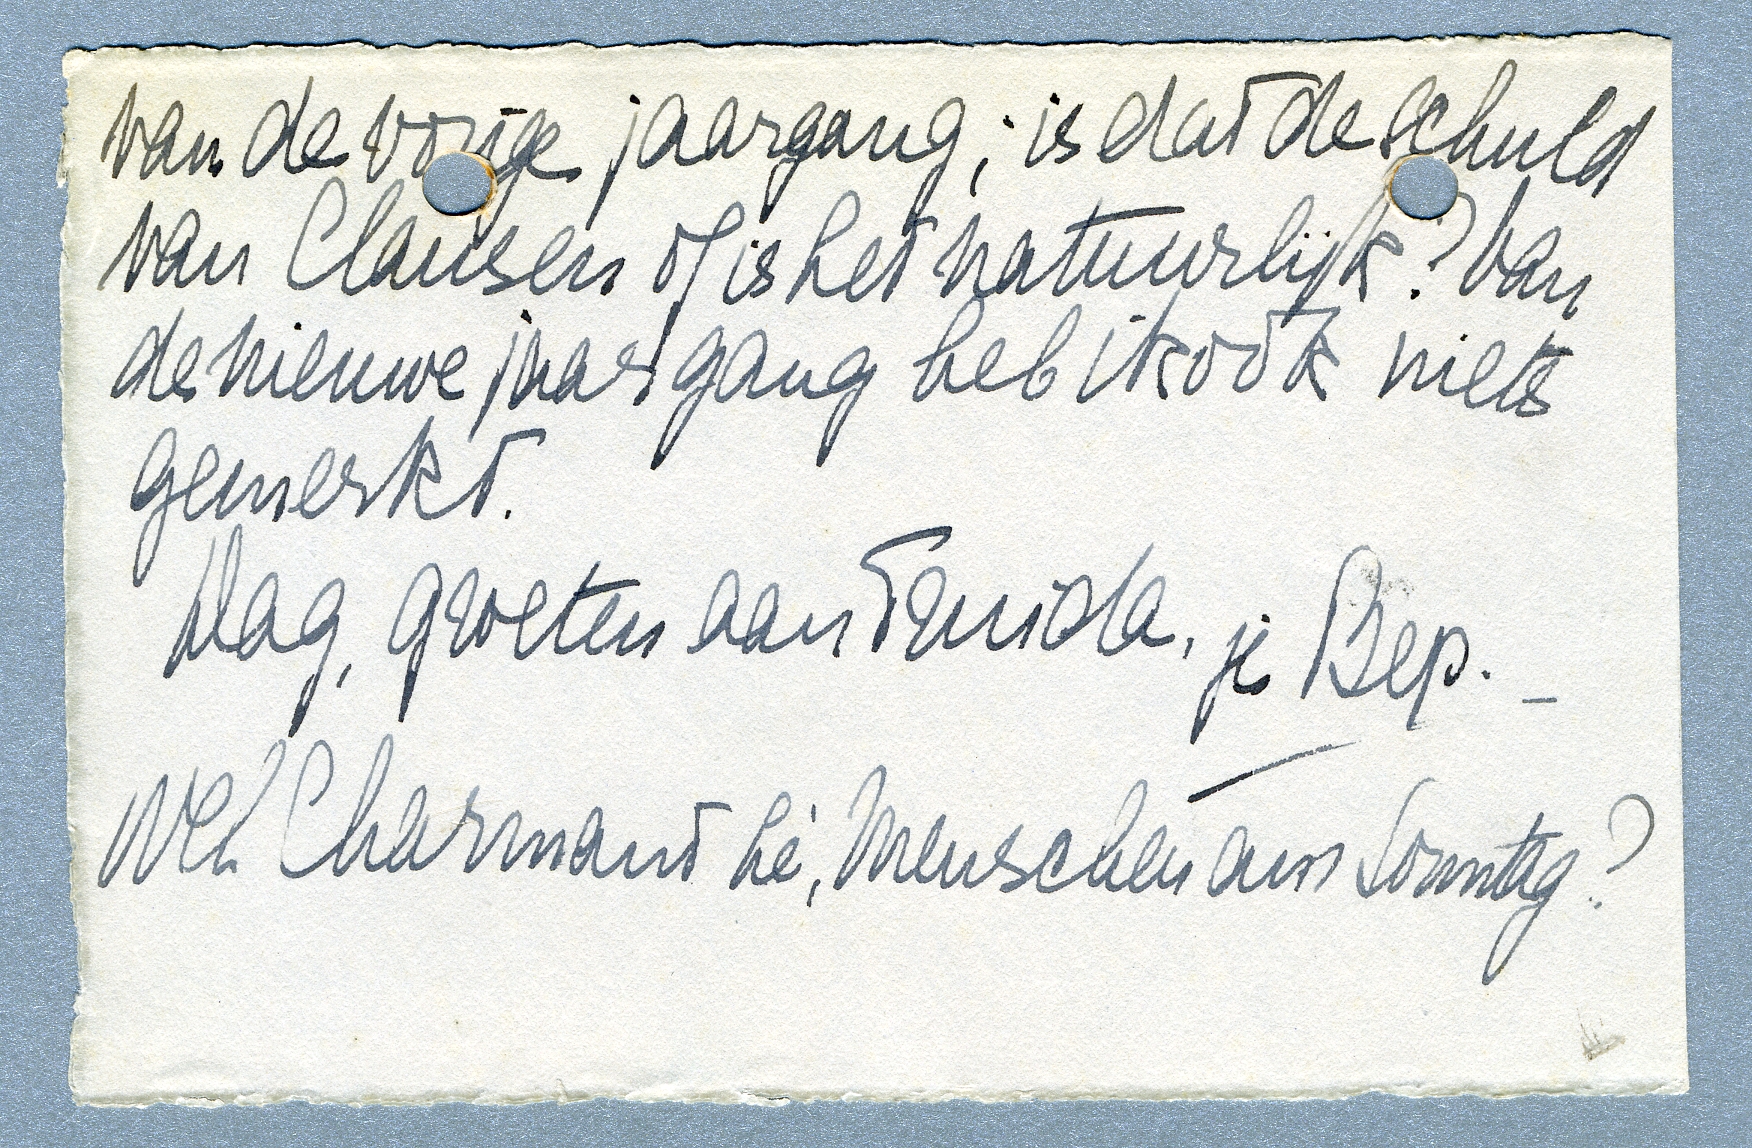 van de vorige jaargang; is dat de schuld
van Clausen of is het natuurlijk? Van
de nieuwe jaargang heb ik ook niets
gemerkt.
Dag, groeten aan Truida, je Bep. _
Wel Charmant hè, Menschen am Sonntag?